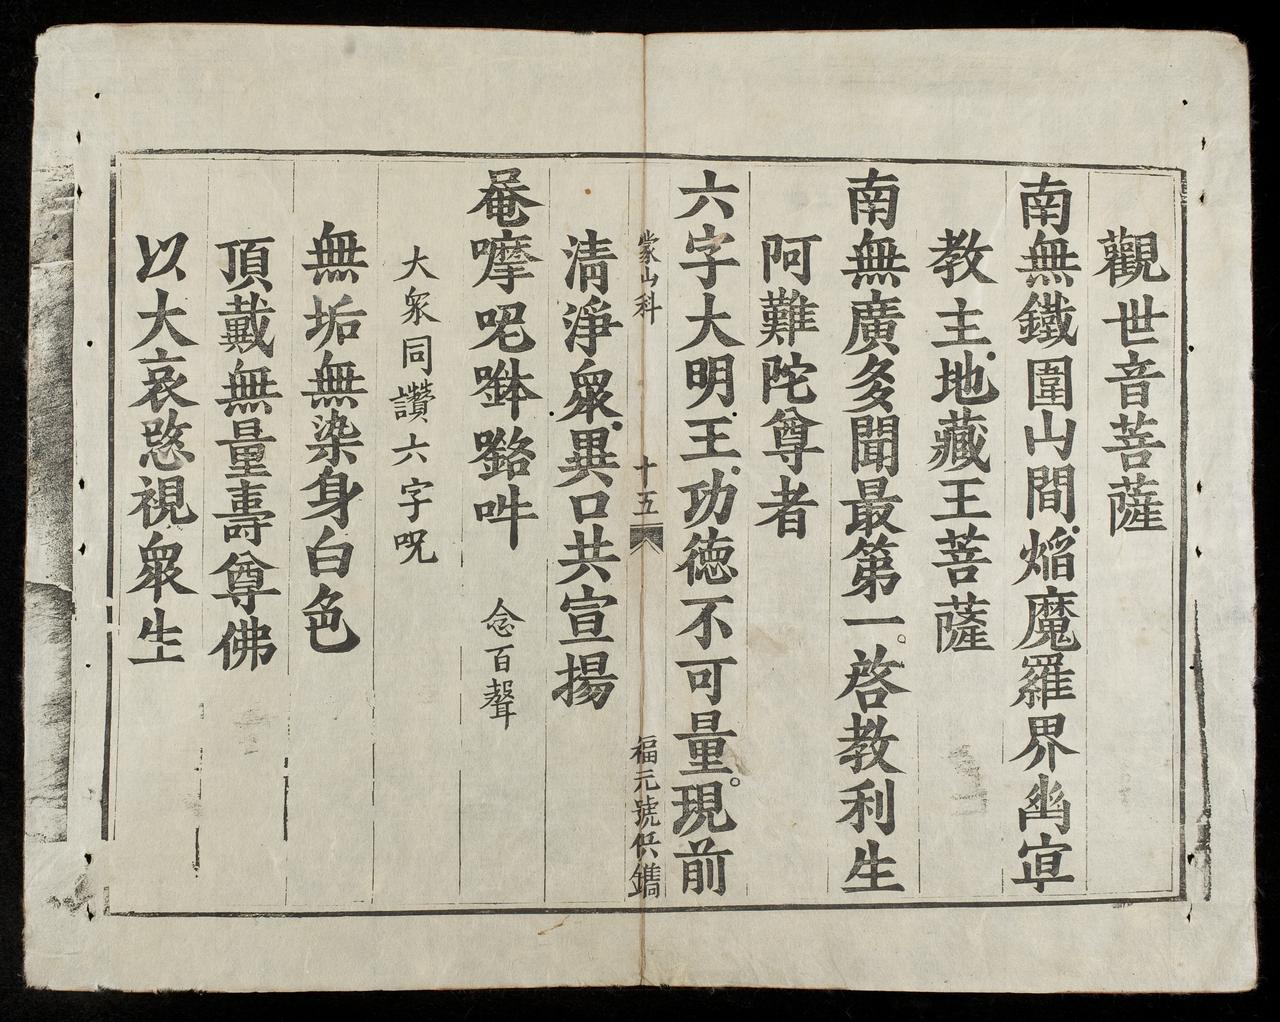 觀世音菩薩
南無鐵圍山間焔魔羅界幽冥
教主地藏王菩薩
南無廣多聞最第一啓教利生
阿難陀尊者
六字大明王功德不可量現前
蒙山科 十五 福元號供鐫
清淨衆異口共宣揚
唵嚤呢𠸹㘄吽 念百聲
大衆同讚六字呪
無垢無染身白色
頂戴無量壽尊佛
以大哀愍視衆生